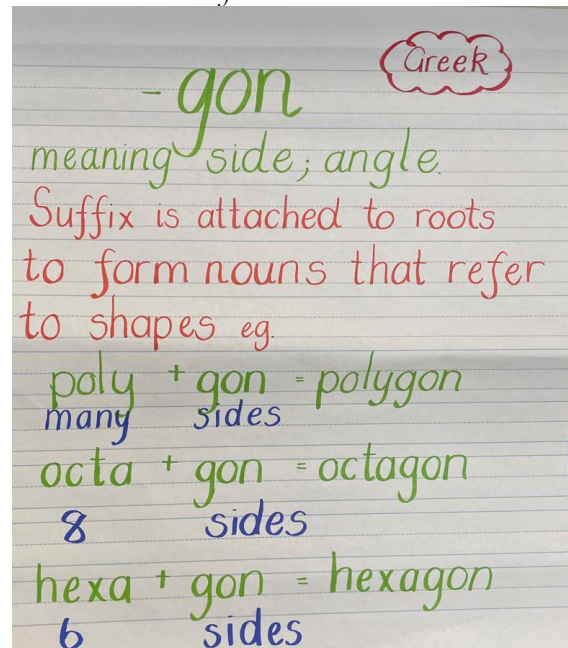 Greek
-gon
meaning side; angle.
Suffix is attached to roots
to form nouns that refer
to shapes eg.
poly + gon = polygon
many sides
octa + gon = octagon
8 sides
hexa + gon = hexagon
6 sides